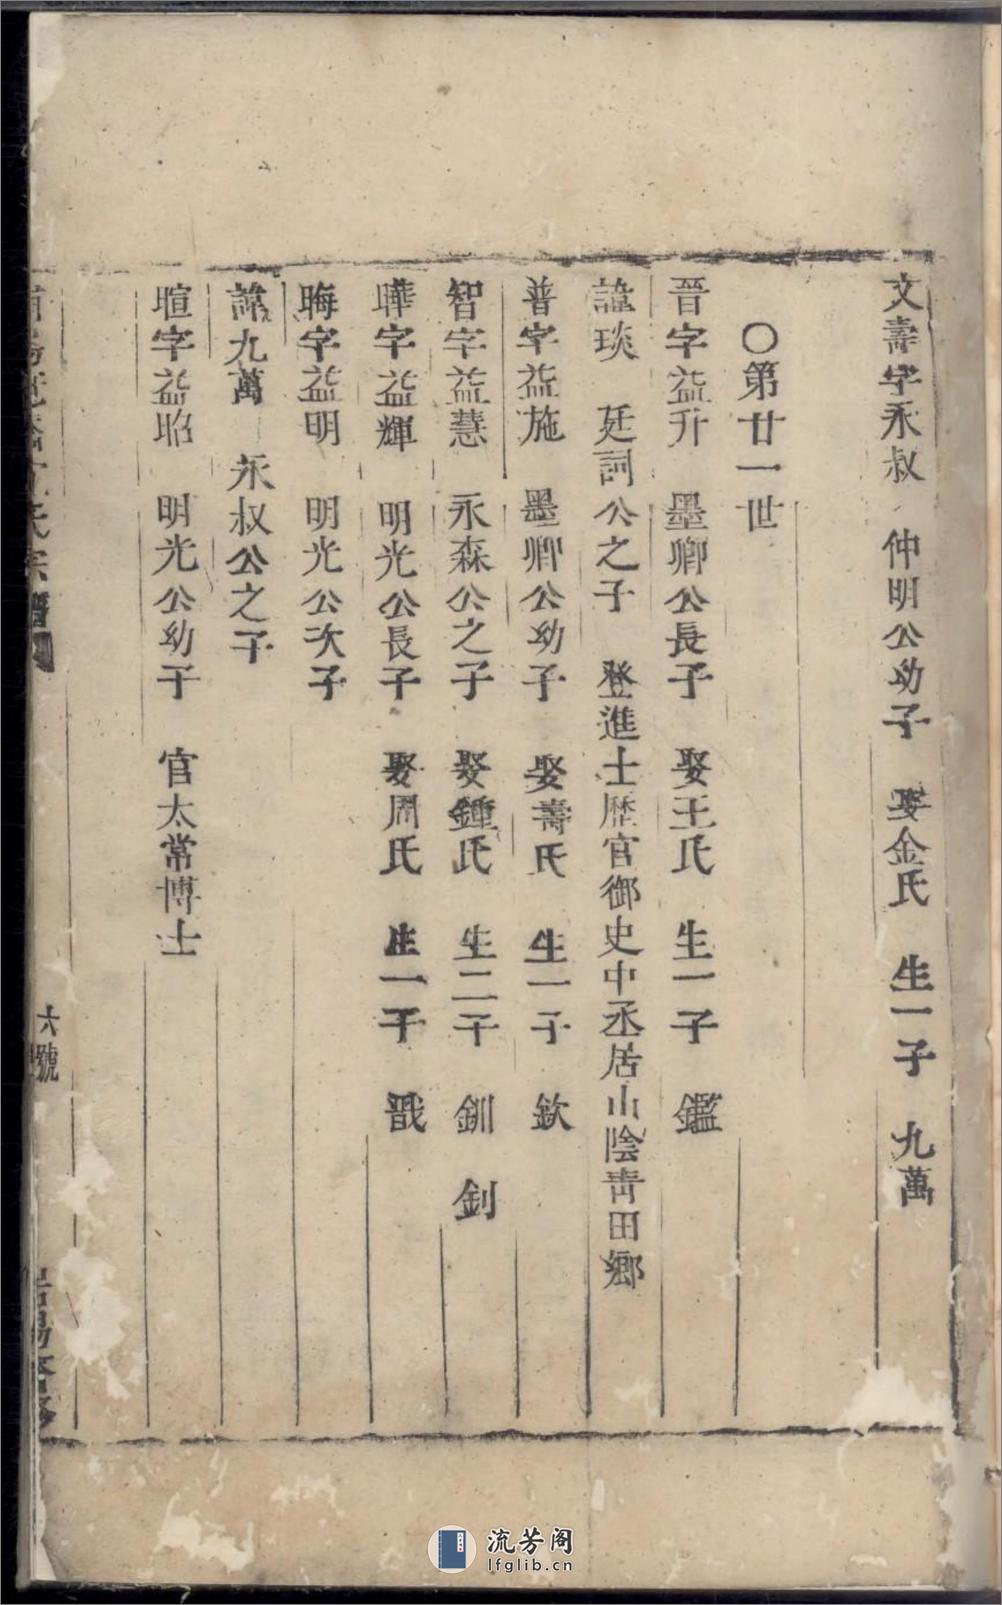 文壽字永叔 仲明公幼子 娶金氏 生一子 九萬
〇第廿一世
晉字益升 墨卿公長子 娶王氏 生一子 鑑
諱琰 廷詞公之子 登進士歷官御史中丞居山陰青田鄉
普字益施 墨卿公幼子 娶壽氏 生一子 欽
智字益慧 永森公之子 娶鍾氏 生二子 釧 釗
曄字益輝 明光公長子 娶周氏 生一子 戩
晦字益明 明光公次子
諱九萬 永叔公之子
暄字益昭 明光公幼子 官太常博士
六號
流芳阁
lfglib.cn